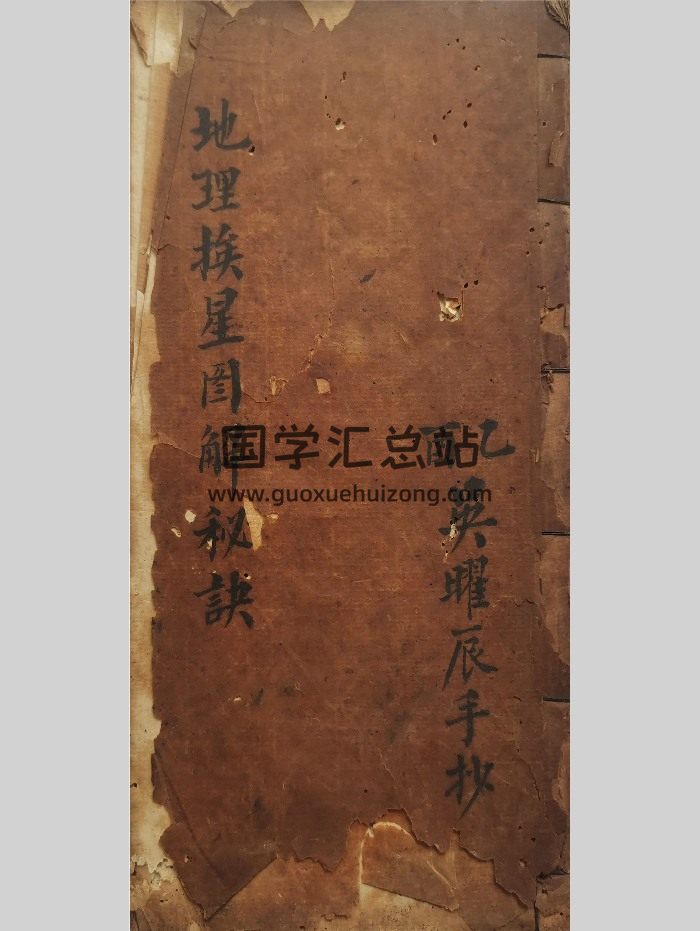 乙酉
英曜辰手抄
地理挨星图解秘訣
国学汇总站
www.guoxuehuizong.com